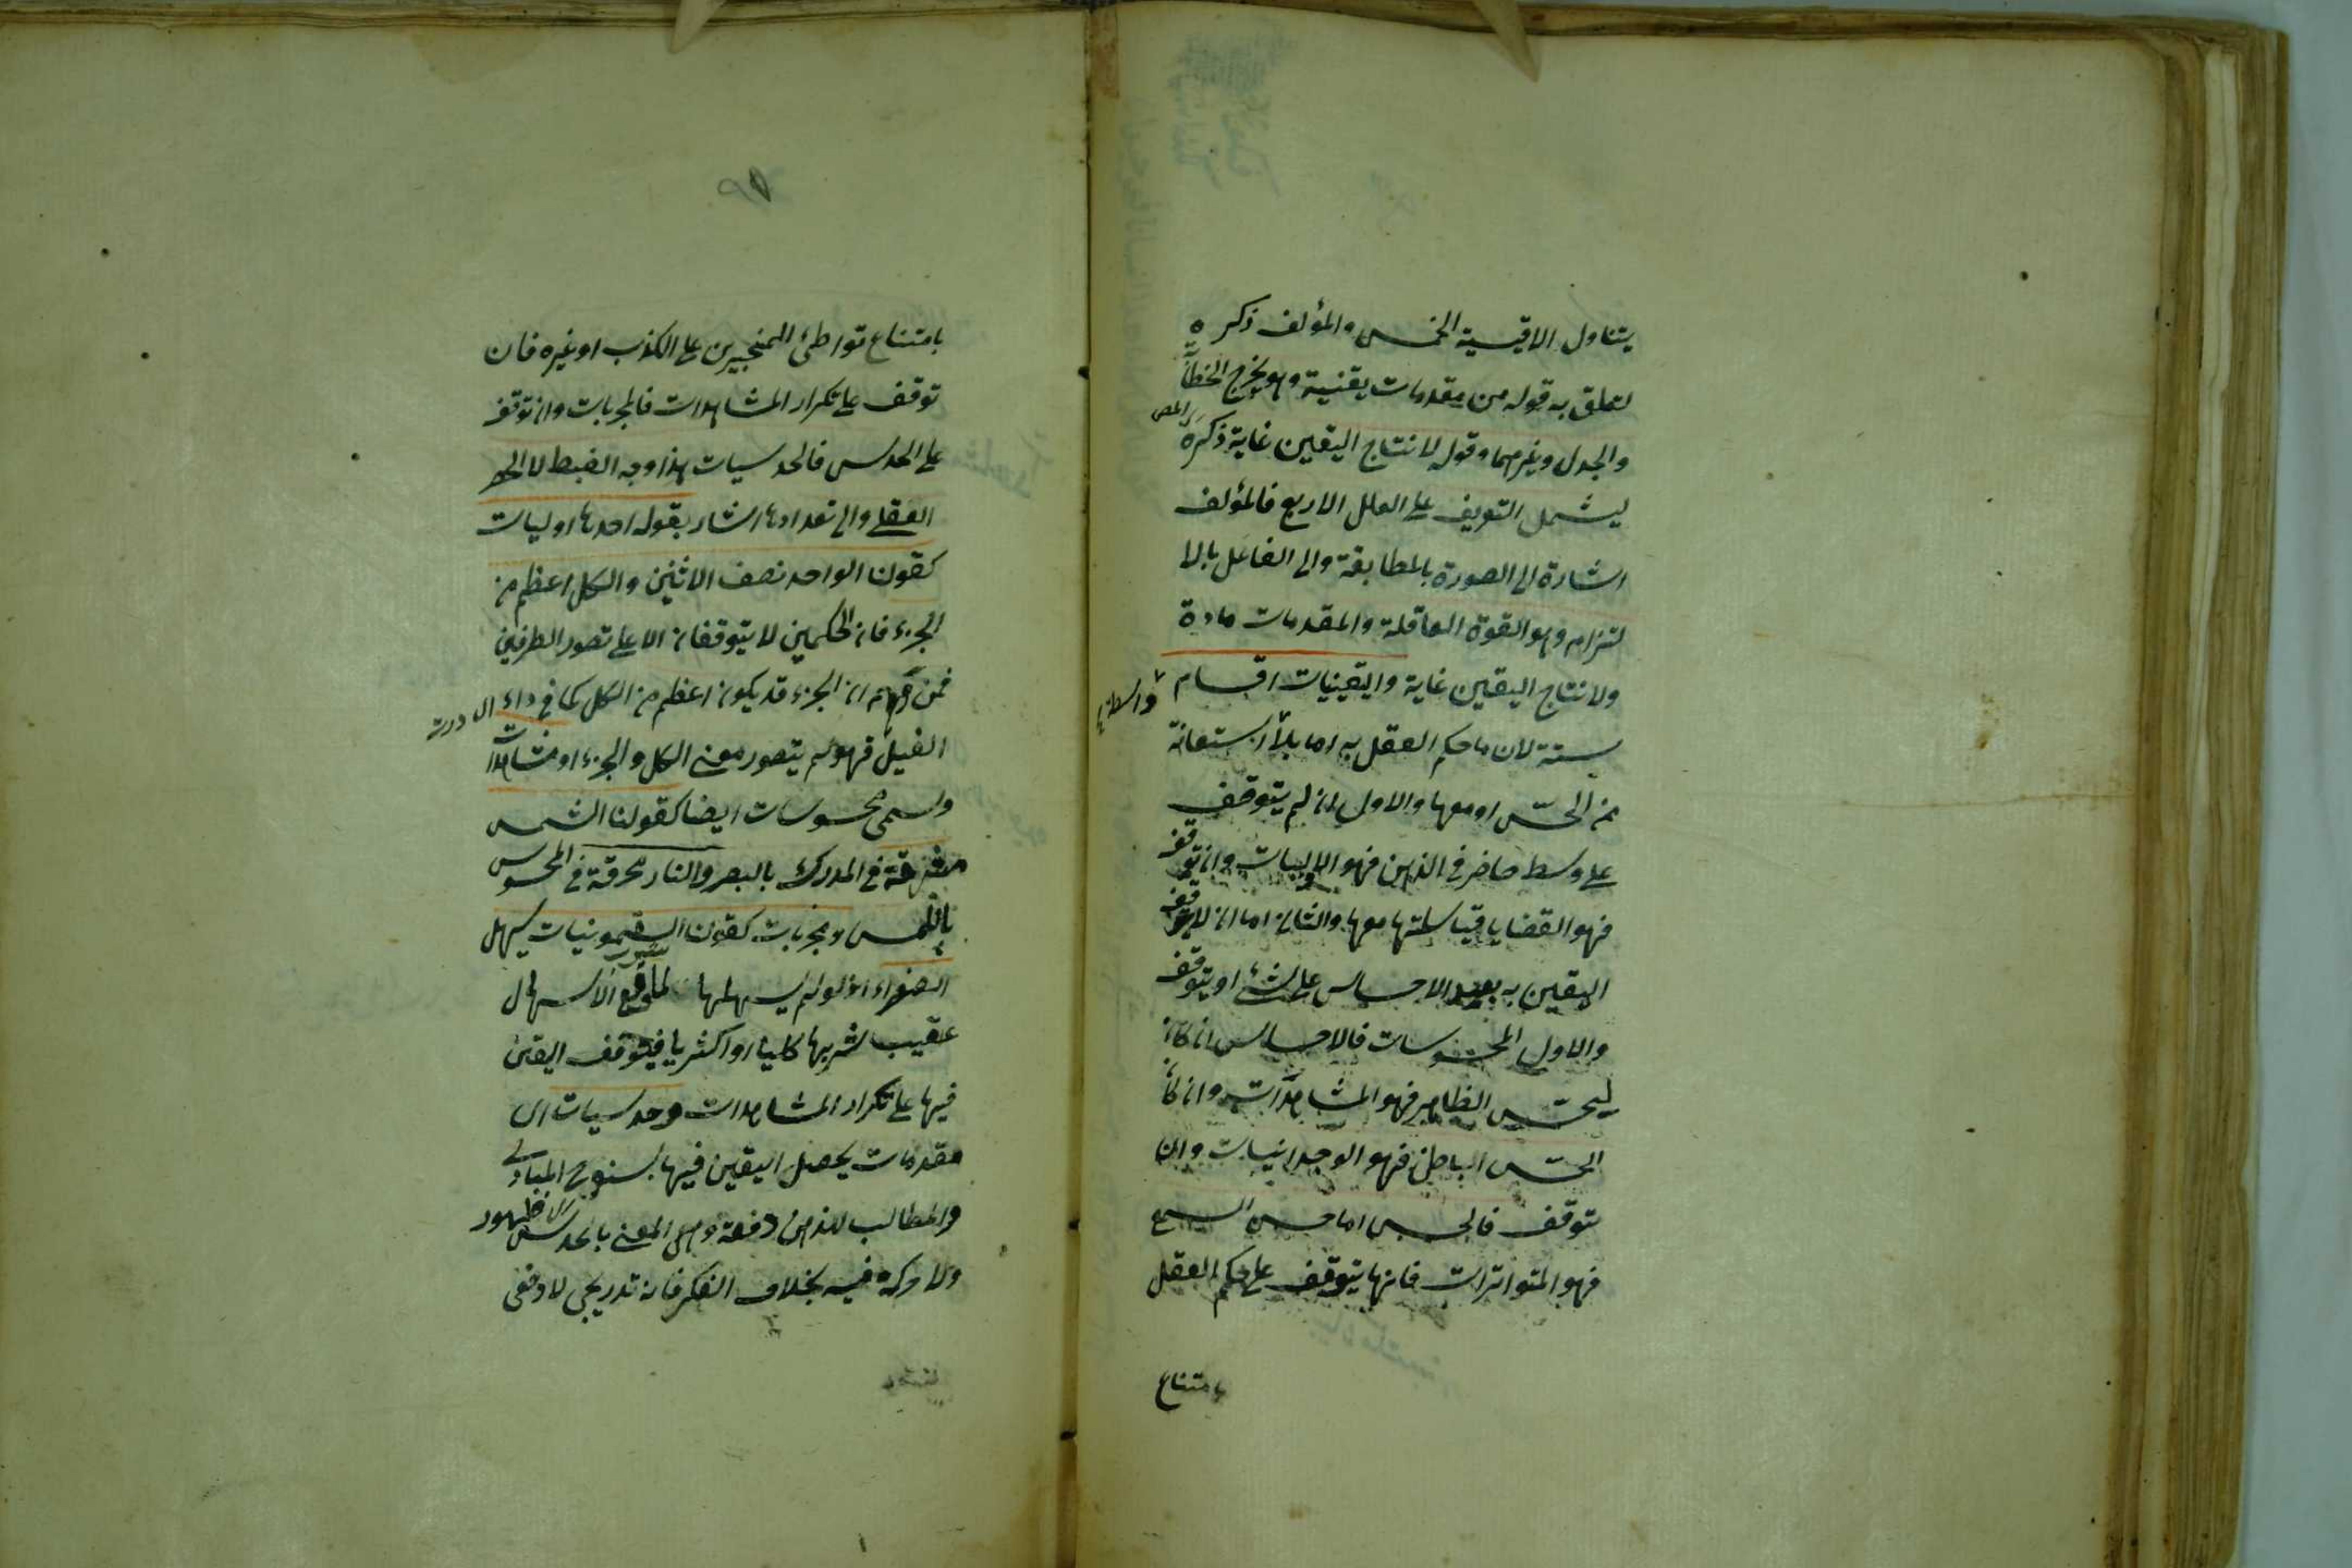 يتناول الاقيسة الخمس والمؤلف ذكره
لتعلق به قوله من مقدمات يقنية وهو يخرج الخطابة
والجدل وغيرهما وقوله لانتاج اليقين غاية ذكره المص
ليشمل التعريف على العلل الاربع فالمؤلف
اشارة الى الصورة بالمطابقة والى الفاعل بالا
لتزام وهو القوة العاقلة والمقدمات مادة
ولانتاج اليقين غاية واليقينيات اقسام
ستة لان ما حكم العقل به اما بلا استعانة
من الحس او معها والاول ان لم يتوقف
على وسط حاضر في الذهن فهو الاوليات وان توقف
فهو القضايا قياساتها معها والثاني اما ان لا يتوقف
اليقين به بعد الاحساس على شئ او يتوقف
والاول المحسوسات فالاحساس ان كان
بحس الظاهر فهو المشاهدات وان كان
الحس الباطن فهو الوجدانيات وان
توقف فالحس اما حس السمع
فهو المتواترات فانها يتوقف على حكم العقل
بامتناع
بامتناع تواطئ المخبرين على الكذب او غيره فان
توقف على تكرار المشاهدات فالمجربات وان توقف
على الحدس فالحدسيات هذا وجه الضبط لا الحصر
العقلي والى تعدادها اشار بقوله احدها اوليات
كقولنا الواحد نصف الاثنين والكل اعظم من
الجزء فان الحكمين لا يتوقفان الا على تصور الطرفين
فمن توهم ان الجزء قد يكون اعظم من الكل كما في داء
الفيل فهو لم يتصور معنى الكل والجزء او مشاهدات
وتسمى محسوسات ايضا كقولنا الشمس
مشرقة في المدرك بالبصر والنار محرقة في المحسوس
باللمس ومجربات كقولنا السقمونيات يسهل
الصفراء اذ لو لم يسهلها لما وقع الاسهال
عقيب شربها كليا او اكثريا فيتوقف اليقين
فيها على تكرار المشاهدات وحدسيات اى
مقدمات يحصل اليقين فيها بسنوح المبادى
والمطالب للذهن دفعة وهى المعنى بالحدس اى ظهور
ولا حركة فيه بخلاف الفكر فانه تدريجى لا دفعى